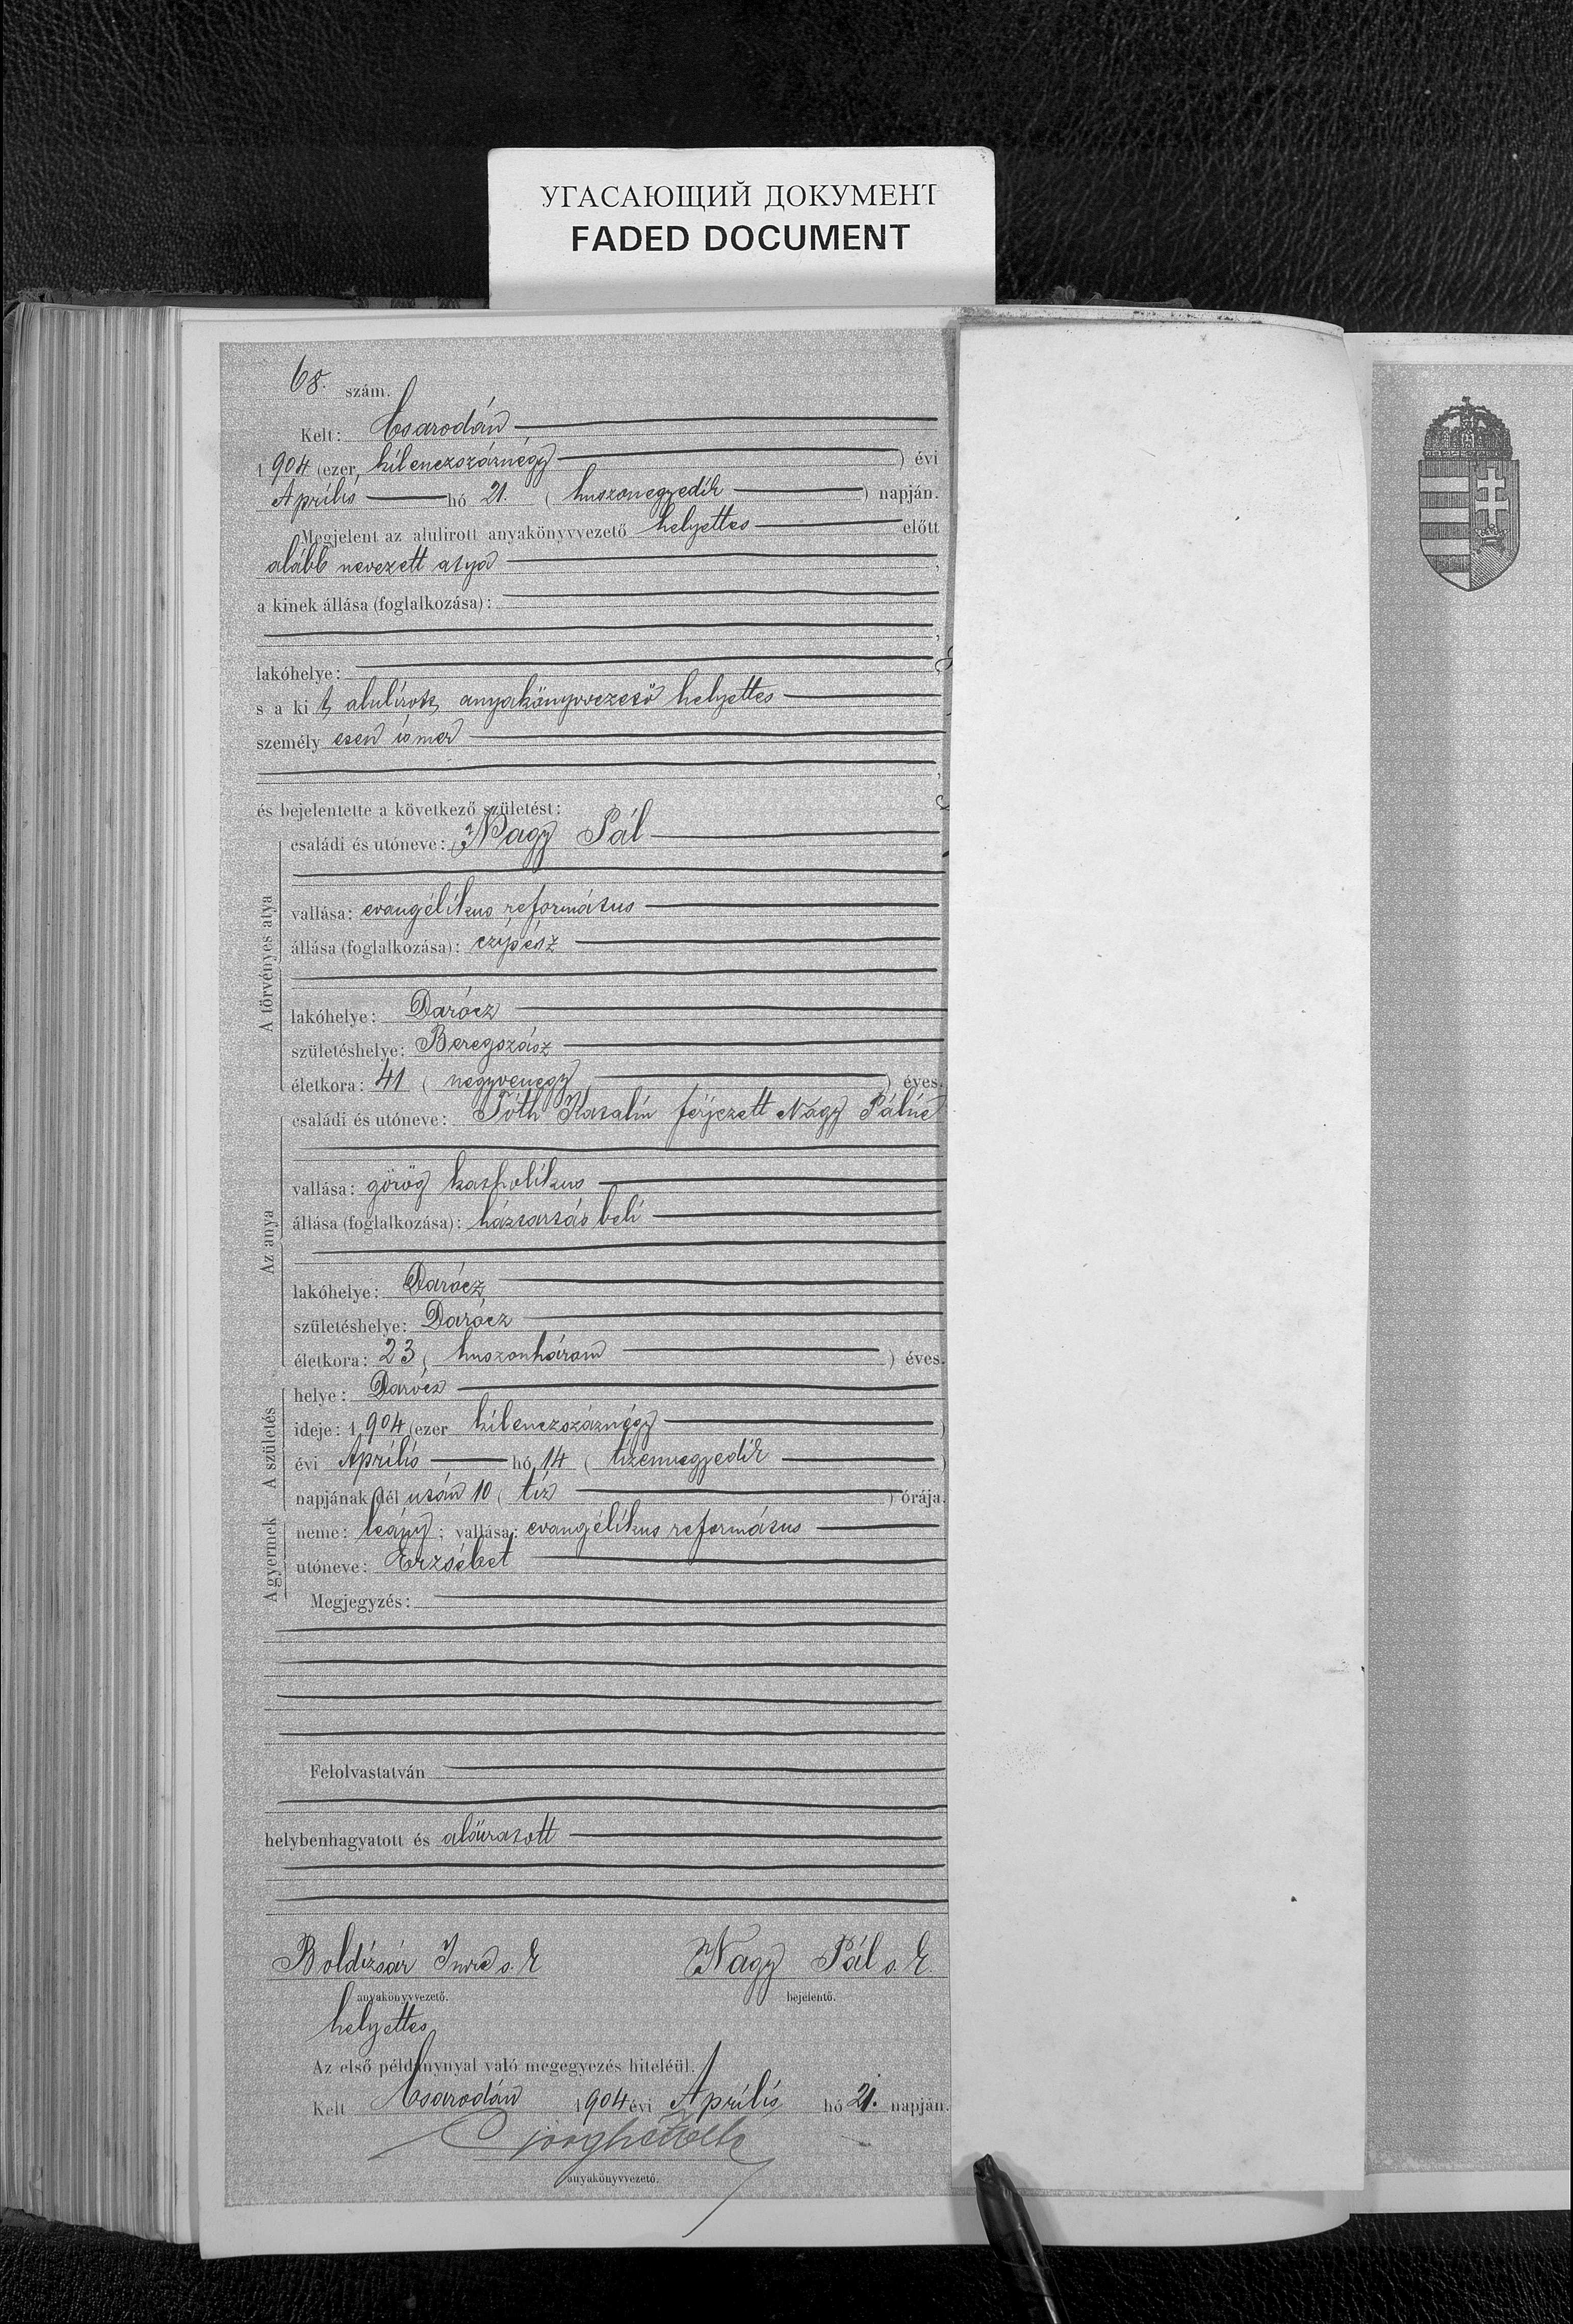 УГАСАЮЩИЙ ДОКУМЕНТ
FADED DOCUMENT
68. szám.
Kelt: Csarodán
1904 (ezer kilenczszáznégy) évi
Április hó 21. (huszonegyedik) napján.
Megjelent az alulirott anyakönyvvezető helyettes előtt
alább nevezett atya,
a kinek állása (foglalkozása):
,
lakóhelye:
s a kit alulírott anyakönyvvezető helyettes
személyesen ismer
,
és bejelentette a következő születést:
A törvényes atya
családi és utóneve: Nagy Pál
vallása: evangélikus református
állása (foglalkozása): czipész
lakóhelye: Darócz
születéshelye: Beregszász
életkora: 41 (negyvenegy) éves.
Az anya
családi és utóneve: Tóth Katalin férjezett Nagy Pálné
vallása: görög katholikus
állása (foglalkozása): háztartásbeli
lakóhelye: Darócz
születéshelye: Darócz
életkora: 23 (huszonhárom) éves.
A születés
helye: Darócz
ideje: 1904 (ezer kilenczszáznégy)
évi Április hó 14 (tizennegyedik)
napjának dél után 10 (tiz) órája.
A gyermek
neme: leány; vallása: evangélikus református
utóneve: Erzsébet
Megjegyzés:
Felolvastatván
helybenhagyatott és aláiratott
Boldizsár Imre s. k. Nagy Pál s. k.
anyakönyvvezető. bejelentő.
helyettes
Az első példánynyal való megegyezés hiteléül.
Kelt Csarodán 1904 évi Április hó 21. napján.
anyakönyvvezető.